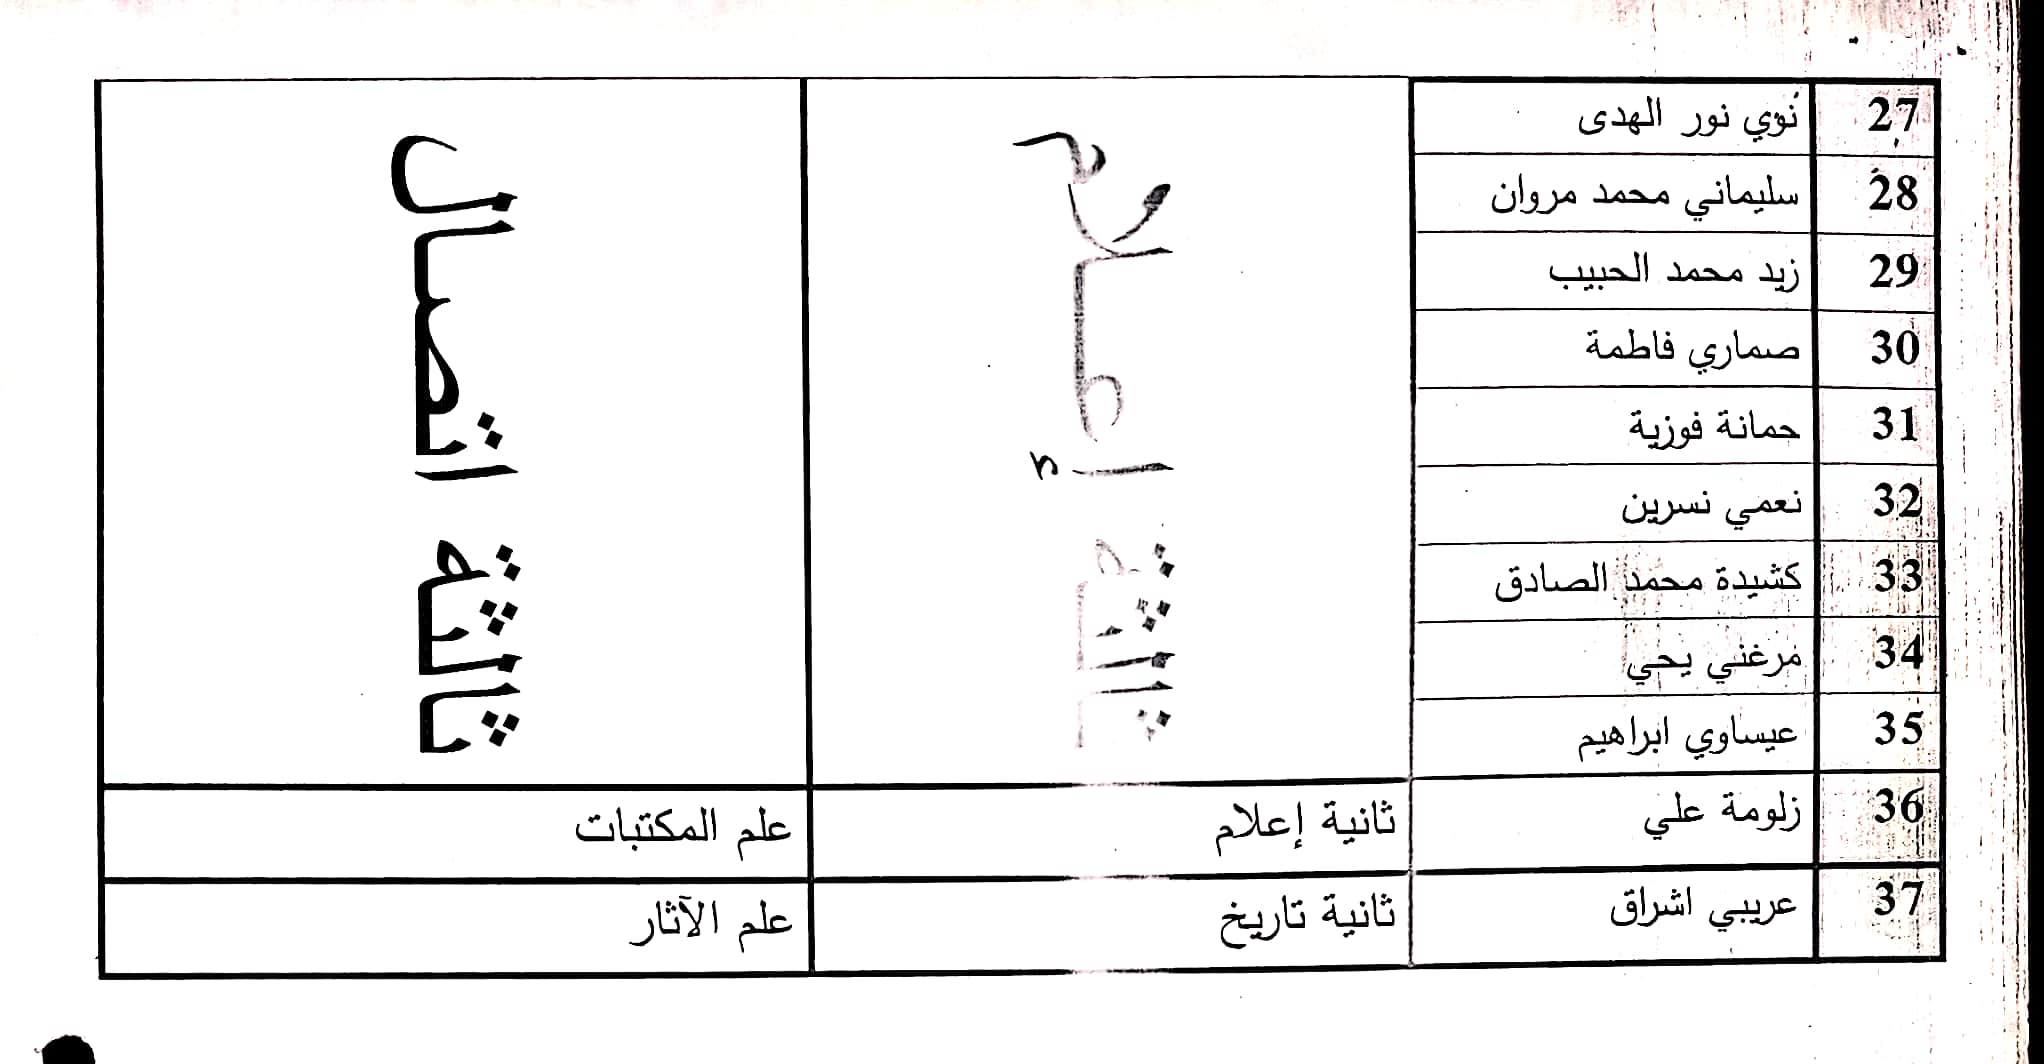 27 نوي نور الهدى
28 سليماني محمد مروان
29 زيد محمد الحبيب
30 صماري فاطمة
31 حمانة فوزية
32 نعمي نسرين
33 كشيدة محمد الصادق
34 مرغني يحي
35 عيساوي ابراهيم
ثالثة إعلام
ثالثة اتصال
36 زلومة علي ثانية إعلام علم المكتبات
37 عريبي اشراق ثانية تاريخ علم الآثار